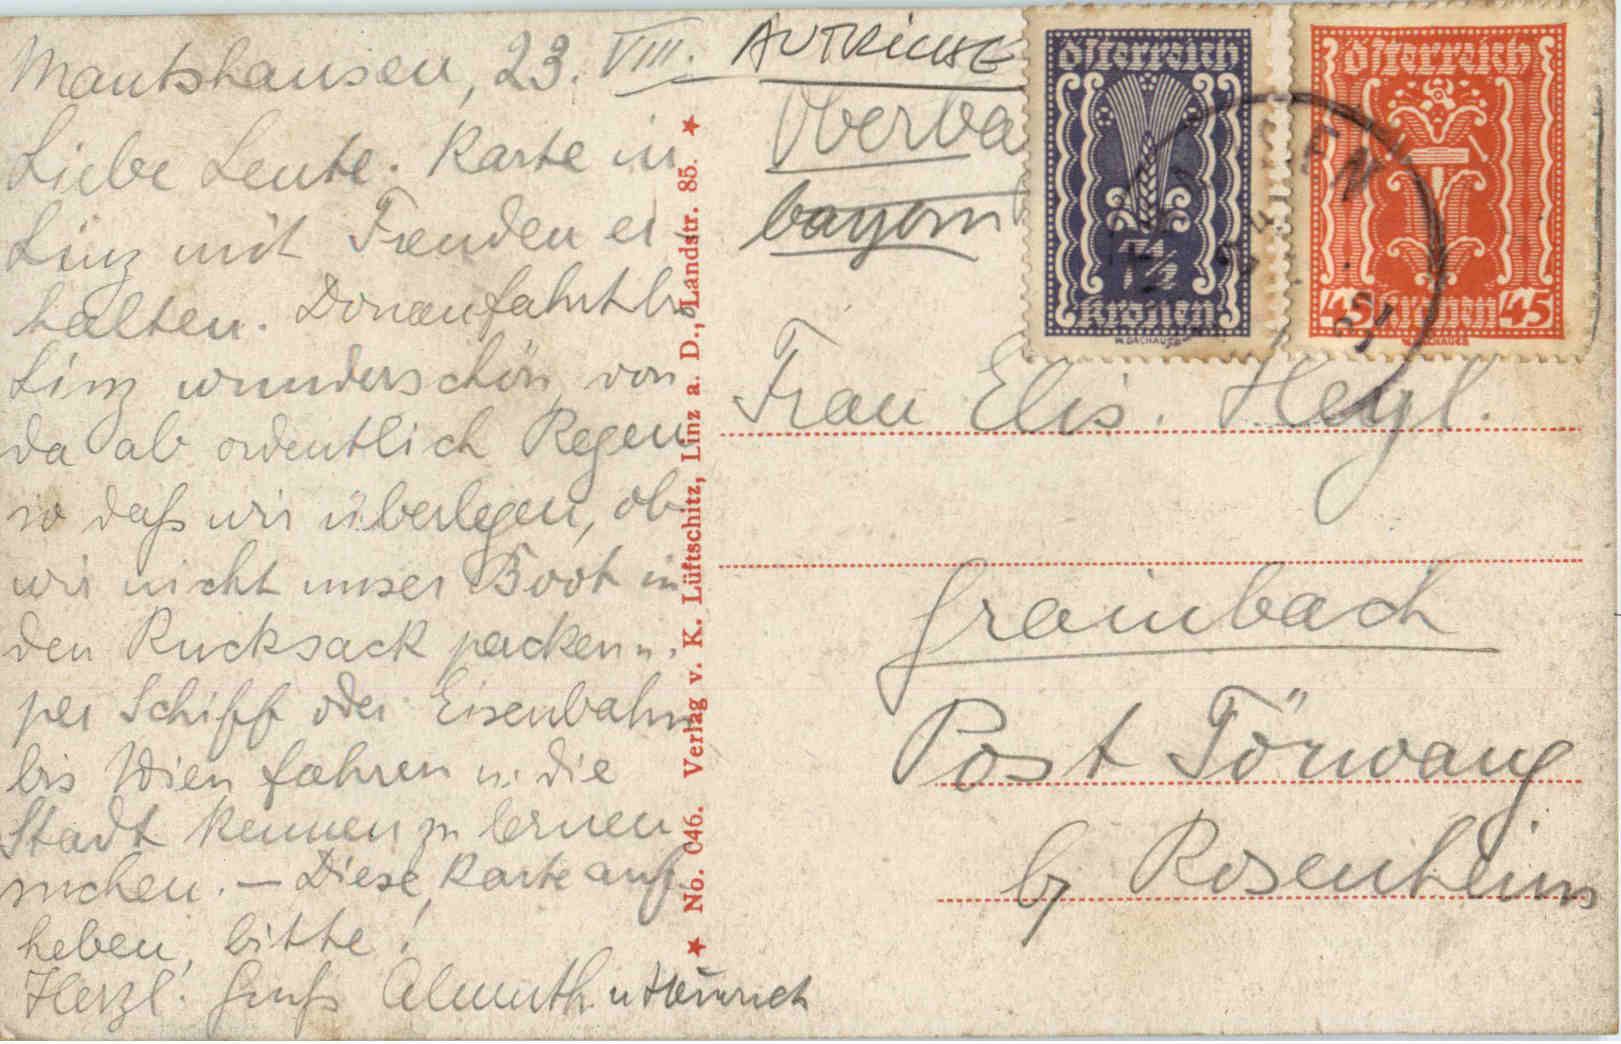 Mautshausen, 23. VIII.
Liebe Leute. Karte in
Linz mit Freuden er-
halten. Donaufahrt b.
Linz wunderschön, von
da ab ordentlich Regen
so daß wir überlegen, ob
wir nicht unser Boot in
den Rucksack packen u.
per Schiff oder Eisenbahn
bis Wien fahren u. die
Stadt kennen zu lernen
suchen. — Diese Karte auf
heben, bitte!
Herzl. Gruß Almuth u Heinrich
★ No. 046. Verlag v. K. Lüftschitz, Linz a. D., Landstr. 85. ★
AUTRICHE
Oberba
bayern
Österreich
1/2
Kronen
W. DACHAUER
Österreich
45 Kronen 45
W. DACHAUER
Frau Elis. Heyl.
Grainbach
Post Törwang
b/ Rosenheim